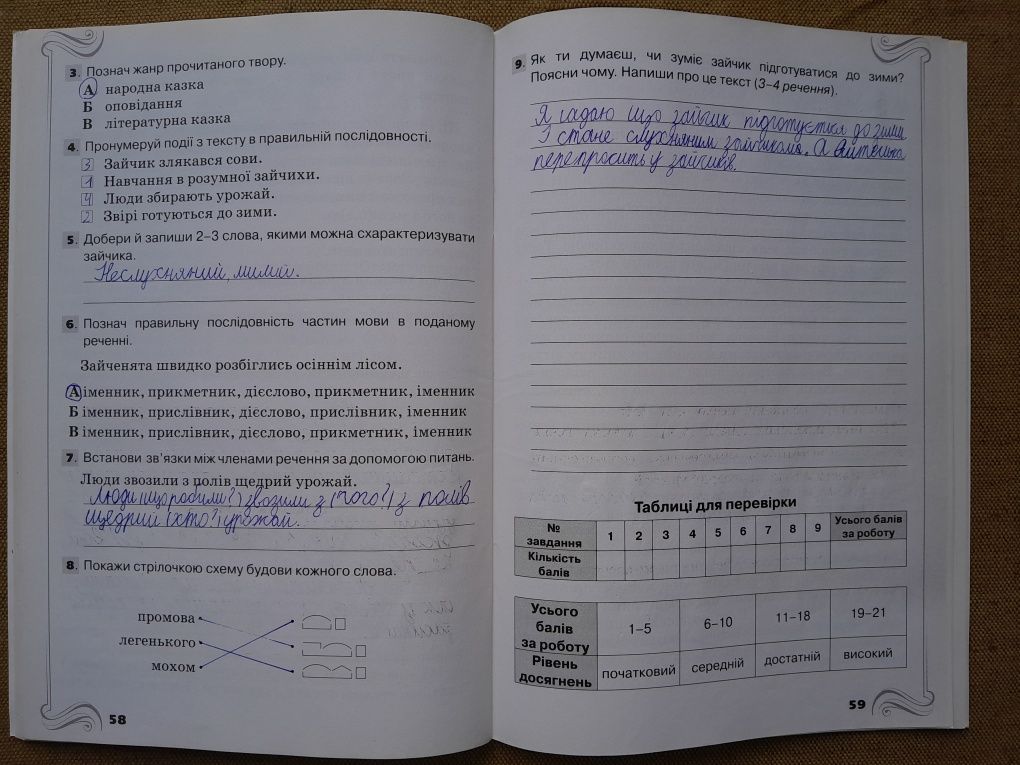 3. Познач жанр прочитаного твору.
А народна казка
Б оповідання
В літературна казка
4. Пронумеруй події з тексту в правильній послідовності.
3 Зайчик злякався сови.
1 Навчання в розумної зайчихи.
4 Люди збирають урожай.
2 Звірі готуються до зими.
5. Добери й запиши 2–3 слова, якими можна схарактеризувати
зайчика.
Неслухняний, милий.
6. Познач правильну послідовність частин мови в поданому
реченні.
Зайченята швидко розбіглись осіннім лісом.
А іменник, прикметник, дієслово, прикметник, іменник
Б іменник, прислівник, дієслово, прислівник, іменник
В іменник, прислівник, дієслово, прикметник, іменник
7. Встанови зв'язки між членами речення за допомогою питань.
Люди звозили з полів щедрий урожай.
Люди (що робили?) звозили з (чого?) з полів
щедрий (хто?) урожай.
8. Покажи стрілочкою схему будови кожного слова.
промова
легенького
мохом
58
9. Як ти думаєш, чи зуміє зайчик підготуватися до зими?
Поясни чому. Напиши про це текст (3–4 речення).
Я гадаю що зайчик підготується до зими
І стане слухняним зайчиком. А
перепросить у зайчихи.
Таблиці для перевірки
№ завдання 1 2 3 4 5 6 7 8 9 Усього балів за роботу
Кількість балів
Усього балів за роботу 1–5 6–10 11–18 19–21
Рівень досягнень початковий середній достатній високий
59